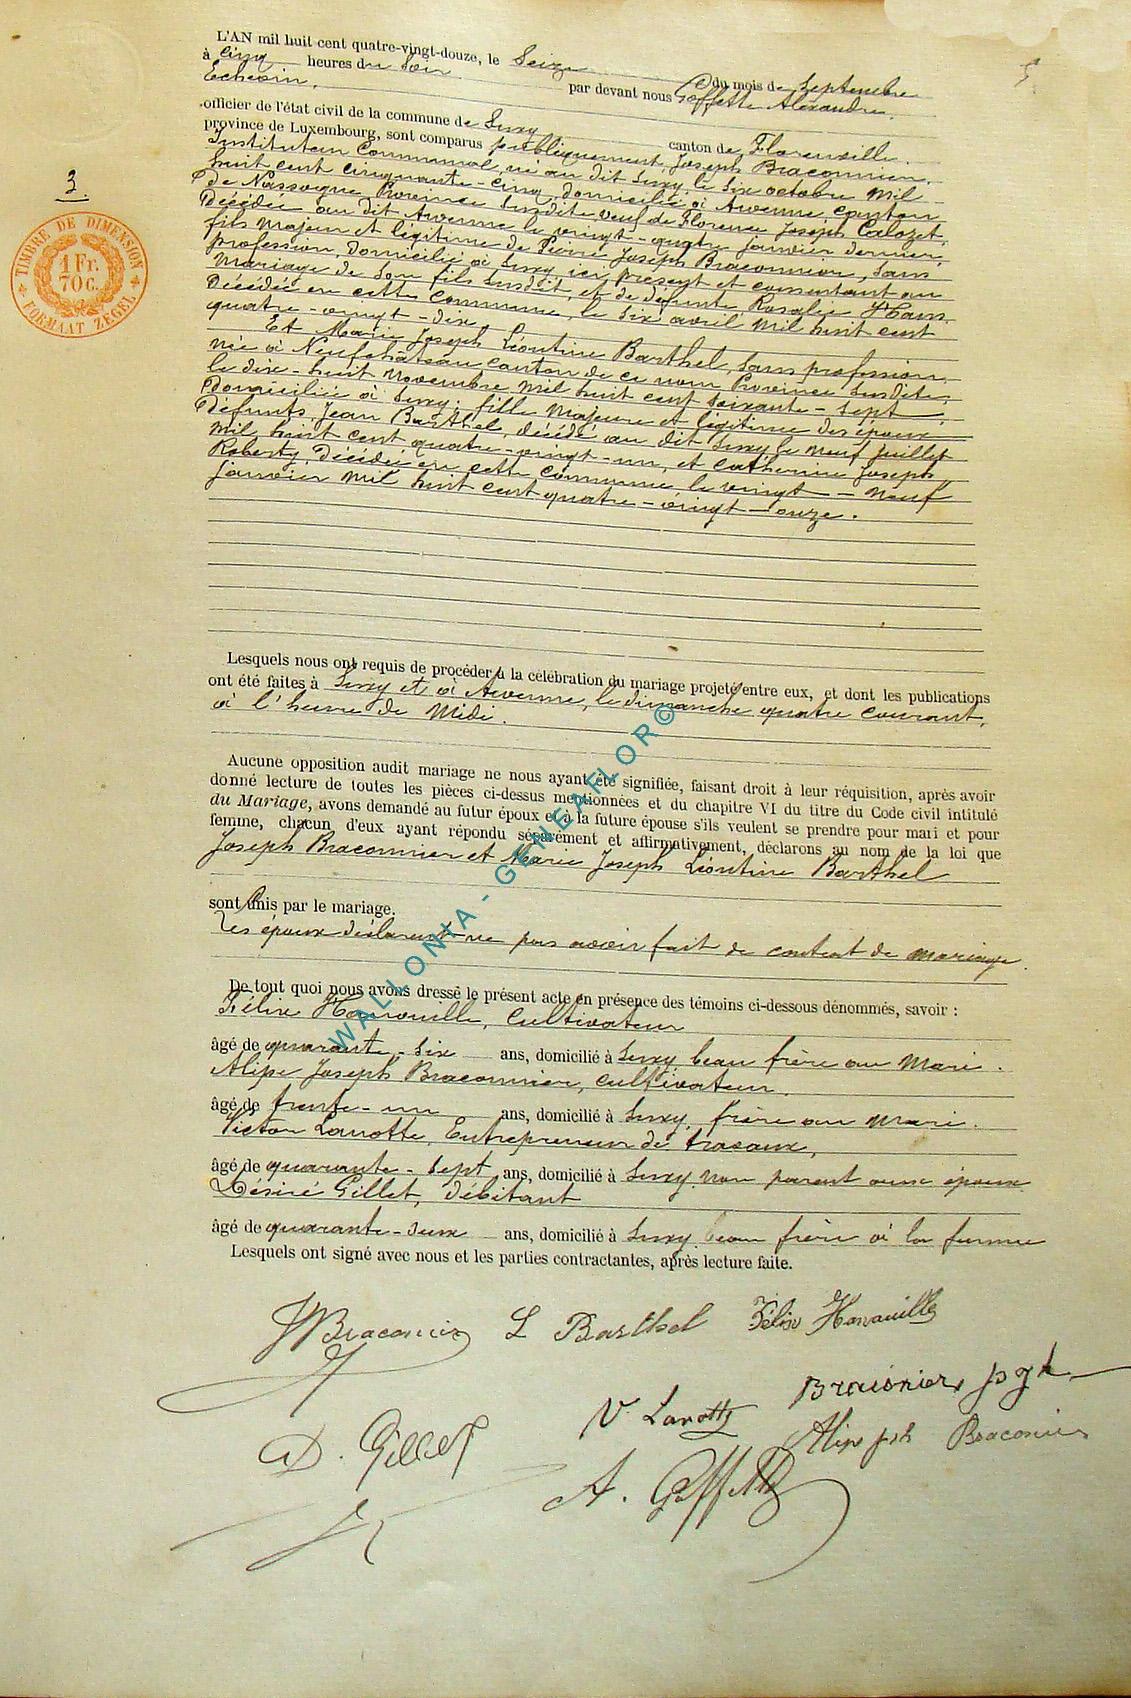 L'AN mil huit cent quatre-vingt-douze, le Seize du mois de Septembre
à cinq heures du Soir par devant nous Goffette Alexandre,
Echevin,
officier de l'état civil de la commune de Suxy canton de Florenville
province de Luxembourg, sont comparus publiquement, Joseph Braconnier,
Instituteur Communal, né au dit Suxy, le six octobre mil
huit cent cinquante-cinq, domicilié à Awenne, canton
de Nassogne, Province susdite veuf de Florence Joseph Calozet,
Décédée au dit Awenne le vingt-quatre janvier dernier,
fils majeur et légitime de Pierre Joseph Braconnier, sans
profession, domicilié à Suxy, ici présent et consentant au
mariage de son fils susdit, et de défunte Rosalie Hans
Décédée en cette Commune, le six avril mil huit cent
quatre-vingt-dix,
Et Marie Joseph Léontine Barthel, sans profession,
née à Neufchâteau canton de ce nom Province susdite,
le dix-huit novembre mil huit cent soixante-sept,
Domiciliée à Suxy, fille majeure et légitime des époux
Défunts Jean Barthel, décédé au dit Suxy le neuf juillet
mil huit cent quatre-vingt-un, et Catherine Joseph
Roberty Décédée en cette commune le vingt-neuf
janvier mil huit cent quatre-vingt-onze.
Lesquels nous ont requis de procéder à la célébration du mariage projeté entre eux, et dont les publications
ont été faites à Suxy et à Awenne, le dimanche quatre courant,
à l'heure de Midi.
Aucune opposition audit mariage ne nous ayant été signifiée, faisant droit à leur réquisition, après avoir
donné lecture de toutes les pièces ci-dessus mentionnées et du chapitre VI du titre du Code civil intitulé
du Mariage, avons demandé au futur époux et à la future épouse s'ils veulent se prendre pour mari et pour
femme, chacun d'eux ayant répondu séparément et affirmativement, déclarons au nom de la loi que
Joseph Braconnier et Marie Joseph Léontine Barthel
sont unis par le mariage.
Les époux déclarent ne pas avoir fait de contrat de mariage.
De tout quoi nous avons dressé le présent acte en présence des témoins ci-dessous dénommés, savoir :
Félix Hanouille, Cultivateur
âgé de quarante-six ans, domicilié à Suxy beau frère au Mari.
Alipe Joseph Braconnier, cultivateur,
âgé de trente-un ans, domicilié à Suxy, frère au mari.
Victor Lanotte, Entrepreneur de travaux,
âgé de quarante-sept ans, domicilié à Suxy non parent aux époux
Désiré Gillet, débitant
âgé de quarante-deux ans, domicilié à Suxy beau frère à la femme
Lesquels ont signé avec nous et les parties contractantes, après lecture faite.
JBraconnier L Barthel Félix
V. Lanotte
D. Gillet Alipe jph Braconnier
A. Goffette
3
TIMBRE DE DIMENSION
1 Fr.
70 c.
FORMAAT ZEGEL
WALLONIA - GENEAFLOR©